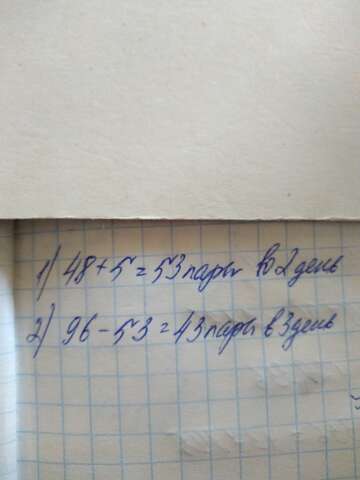 1) 48+5=53 пары во 2 день
2) 96-53=43 пары в 3 день